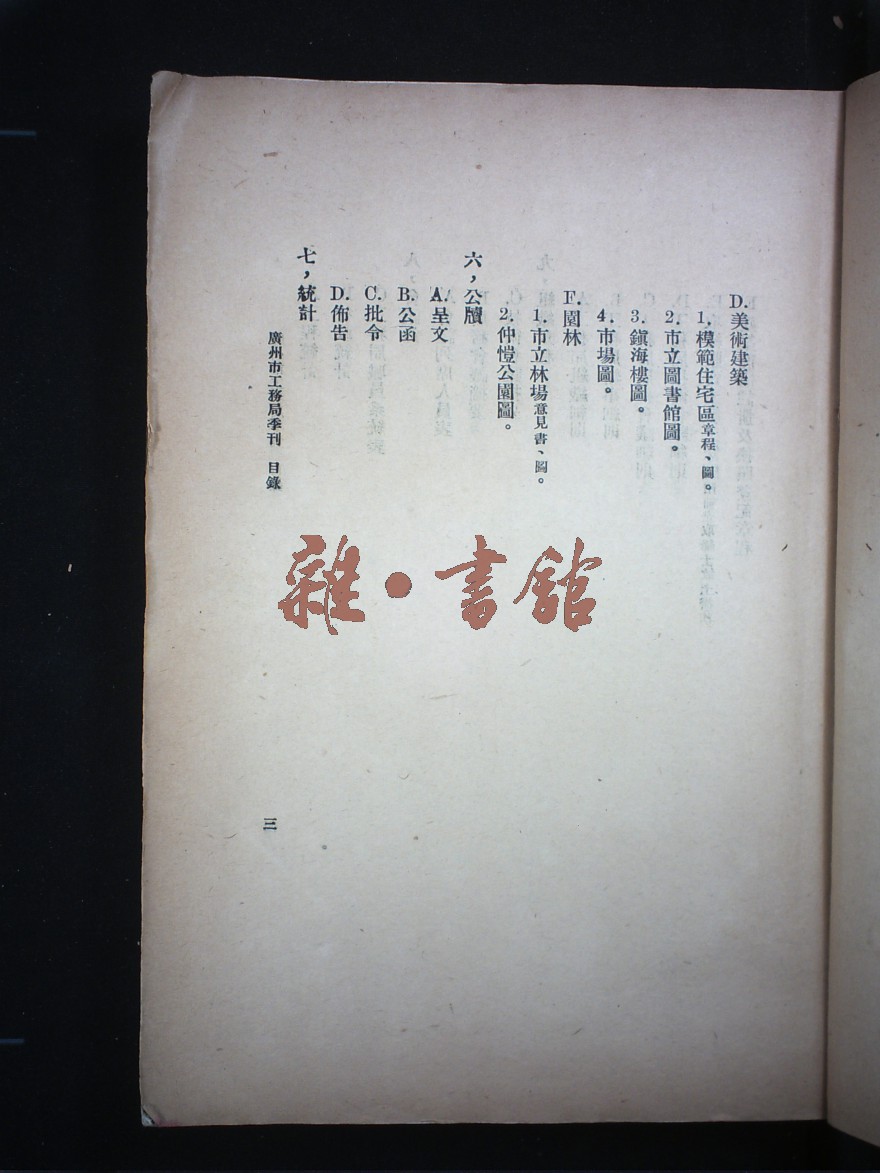 D.美術建築
1.模範住宅區章程、圖。
2.市立圖書館圖。
3.鎮海樓圖。
4.市場圖。
F.園林
1.市立林場意見書、圖。
2.仲愷公園圖。
六，公牘
A.呈文
B.公函
C.批令
D.佈告
七，統計
廣州市工務局季刊 目錄
三
雜·書館